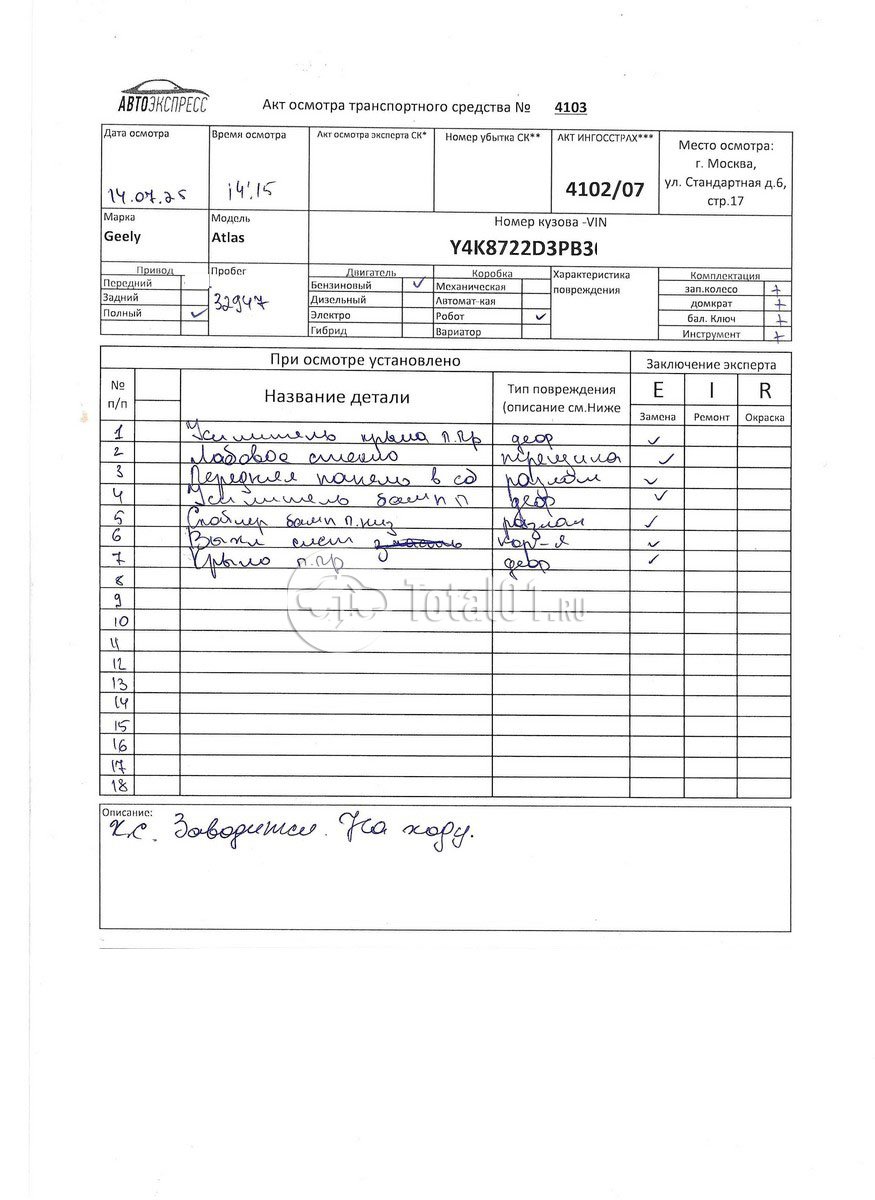 АВТОЭКСПРЕСС
Акт осмотра транспортного средства № 4103
Дата осмотра
14.07.25
Время осмотра
14:15
Акт осмотра эксперта СК*
Номер убытка СК**
АКТ ИНГОССТРАХ***
4102/07
Место осмотра:
г. Москва,
ул. Стандартная д.6,
стр.17
Марка
Geely
Модель
Atlas
Номер кузова -VIN
Y4K8722D3PB3
Привод
Передний
Задний
Полный ✓
Пробег
32947
Двигатель
Бензиновый ✓
Дизельный
Электро
Гибрид
Коробка
Механическая
Автомат-кая
Робот ✓
Вариатор
Характеристика
повреждения
Комплектация
зап.колесо +
домкрат +
бал. Ключ +
Инструмент +
При осмотре установлено
Заключение эксперта
№
п/п
Название детали
Тип повреждения
(описание см.Ниже
E I R
Замена Ремонт Окраска
1 Усилитель крыла п.пр деф ✓
2 Лобовое стекло трещина ✓
3 Передняя панель в сб разлом ✓
4 Усилитель бамп п деф ✓
5 Спойлер бамп п.низ разлом ✓
6 ✓
7 Крыло п.пр деф ✓
8
9
10
11
12
13
14
15
16
17
18
Описание:
Заводится. На ходу.
Total01.RU